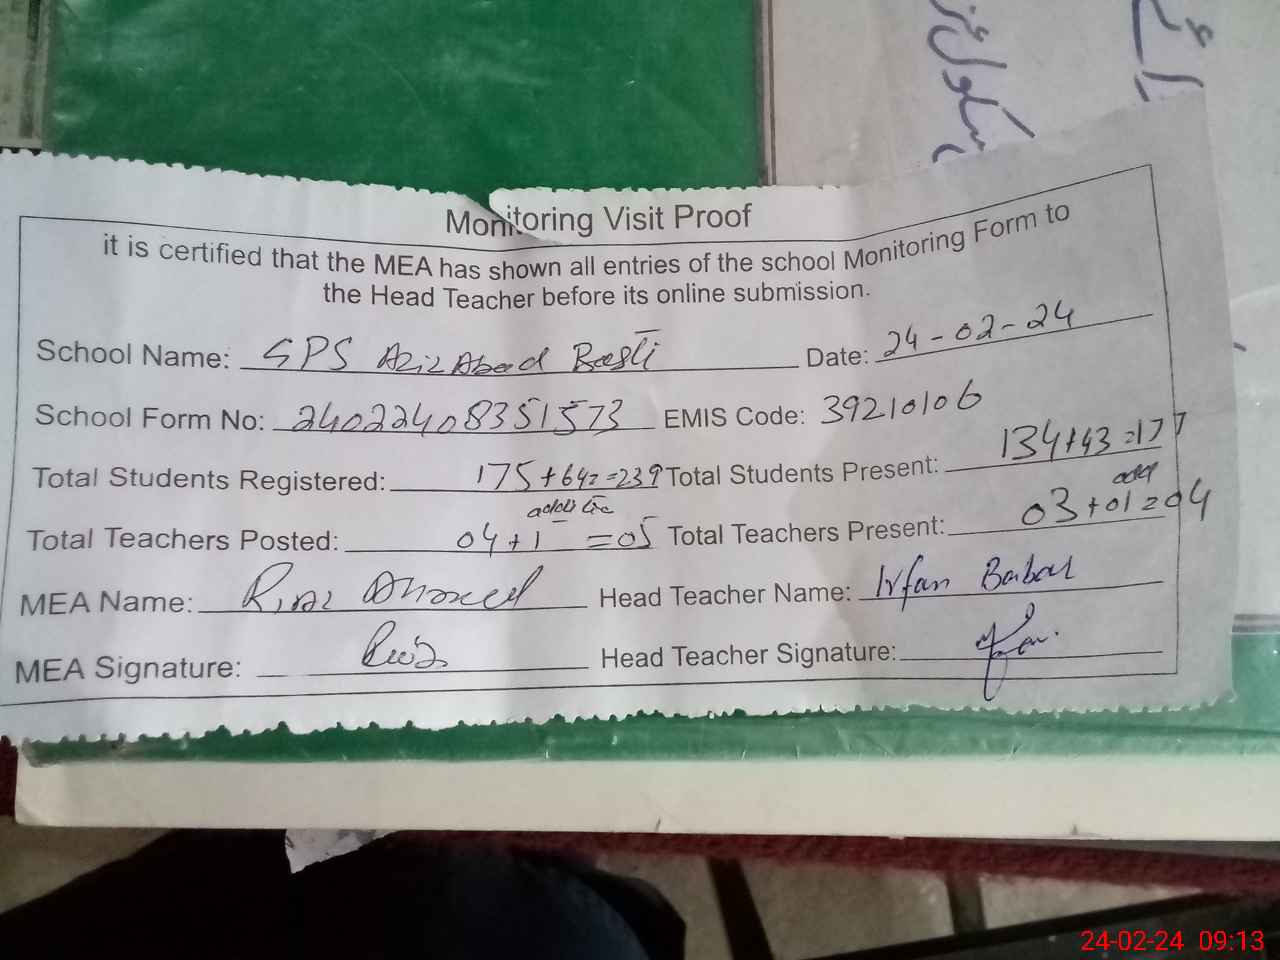 سکول
Monitoring Visit Proof
it is certified that the MEA has shown all entries of the school Monitoring Form to
the Head Teacher before its online submission.
School Name: GPS Aziz Abad Basti Date: 24-02-24
School Form No: 24022408351573 EMIS Code: 39210106
Total Students Registered: 175+64=239 Total Students Present: 134+43=177
Total Teachers Posted: 04+1 =05 Total Teachers Present: 03+01=04
MEA Name: Riaz Ahmed Head Teacher Name: Irfan Babar
MEA Signature: Riaz Head Teacher Signature:
24-02-24 09:13